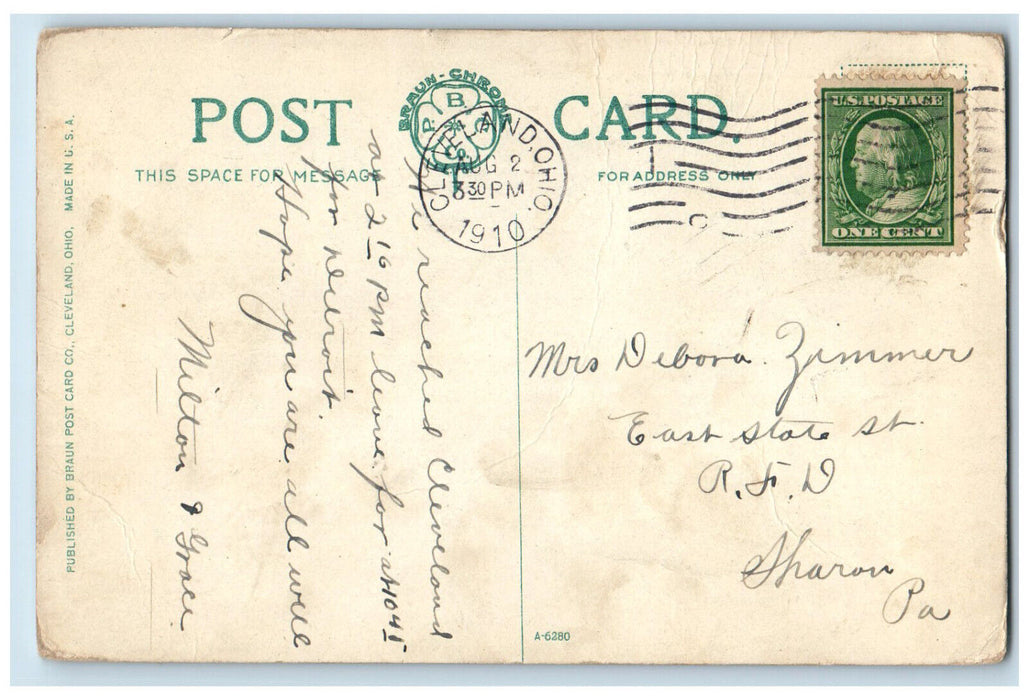 POST CARD.
BRAUN-CHROM
P. B. C.
THIS SPACE FOR MESSAGE
FOR ADDRESS ONLY
CLEVELAND, OHIO.
AUG 2
3 30 PM
1910
U.S. POSTAGE
ONE CENT
We reached Cleveland
at 2 10 PM leave for
for Detroit.
Hope you are all well
Milton & Grace
Mrs Debora Zimmer
East State St.
R.F.D
Sharon
Pa
PUBLISHED BY BRAUN POST CARD CO., CLEVELAND, OHIO, MADE IN U.S.A.
A-6280